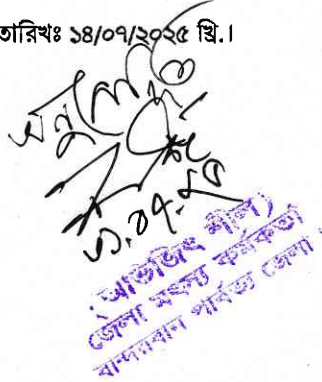 তারিখঃ ১৪/০৭/২০২৫ খ্রি.।
(অভিজিৎ শীল)
জেলা মৎস্য কর্মকর্তা
বান্দরবান পার্বত্য জেলা